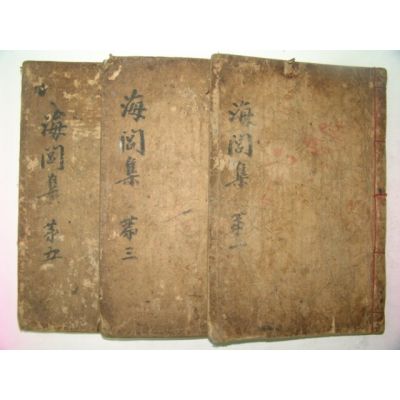 海閭集 第一
海閭集 第三
海閭集 第五